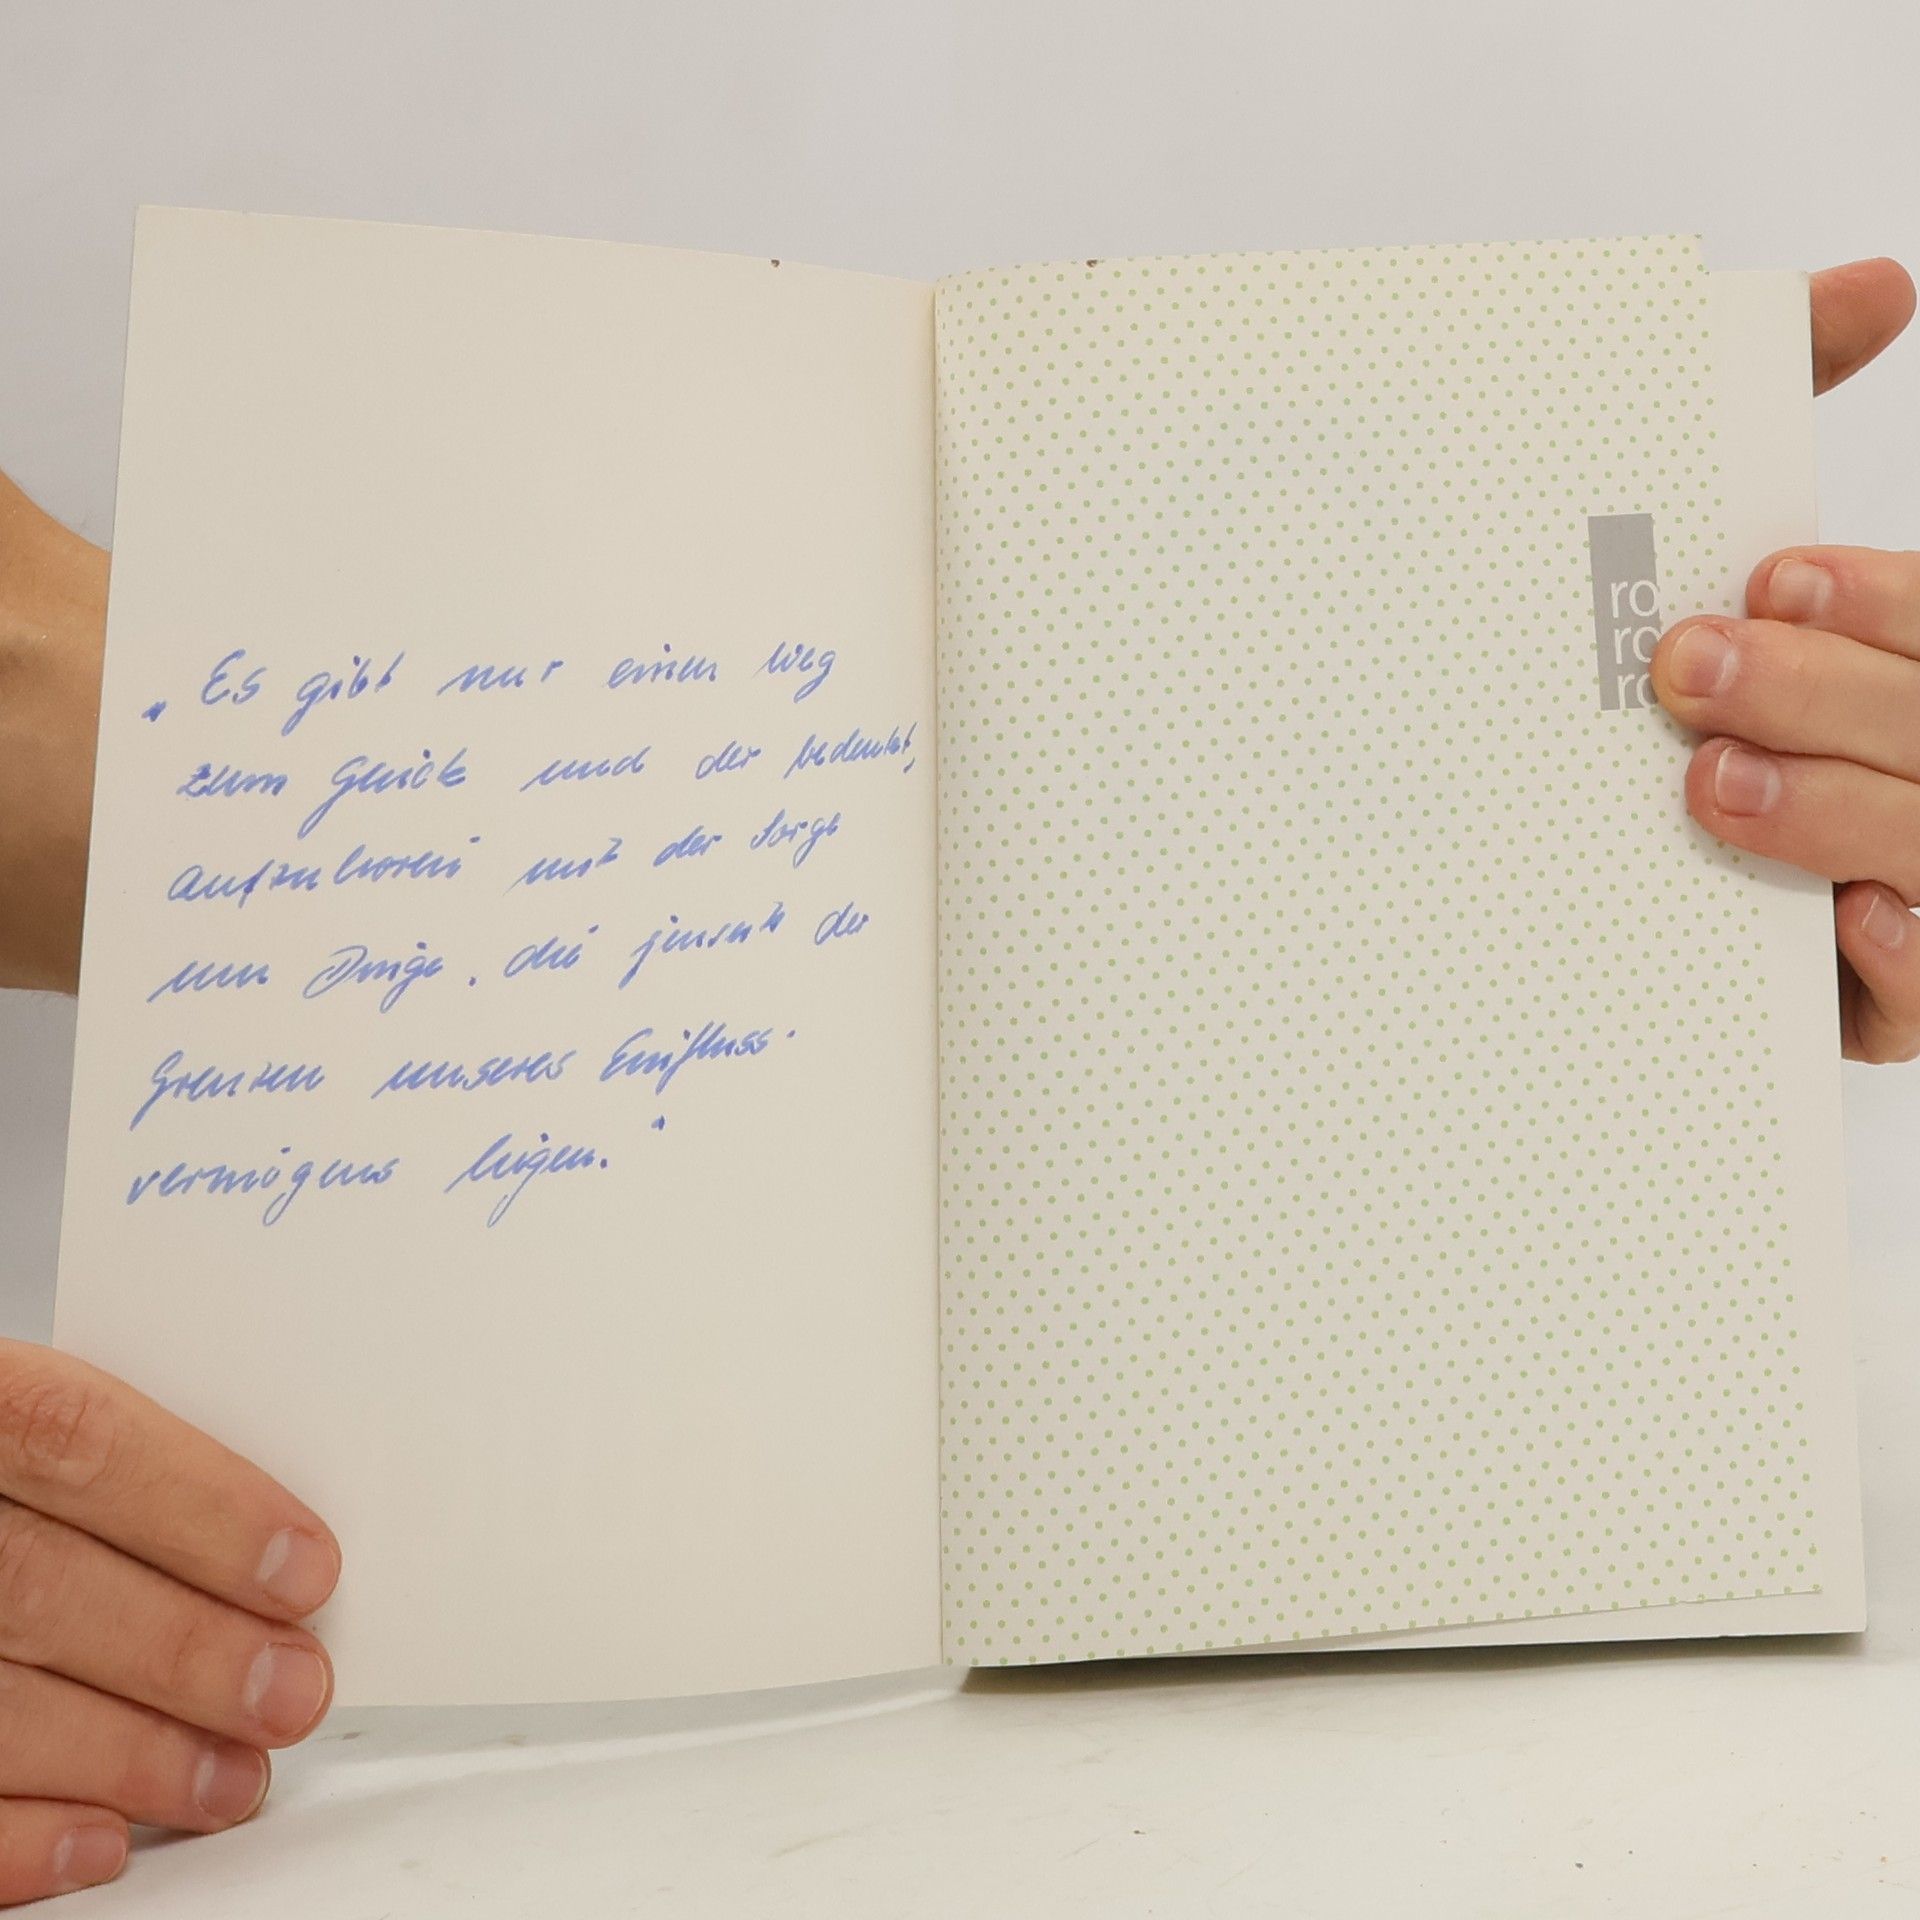 „Es gibt nur einen Weg
zum Glück und der bedeutet,
aufzuhören mit der Sorge
um Dinge, die jenseits der
Grenzen unseres Einfluss-
vermögens liegen."
ro
ro
ro